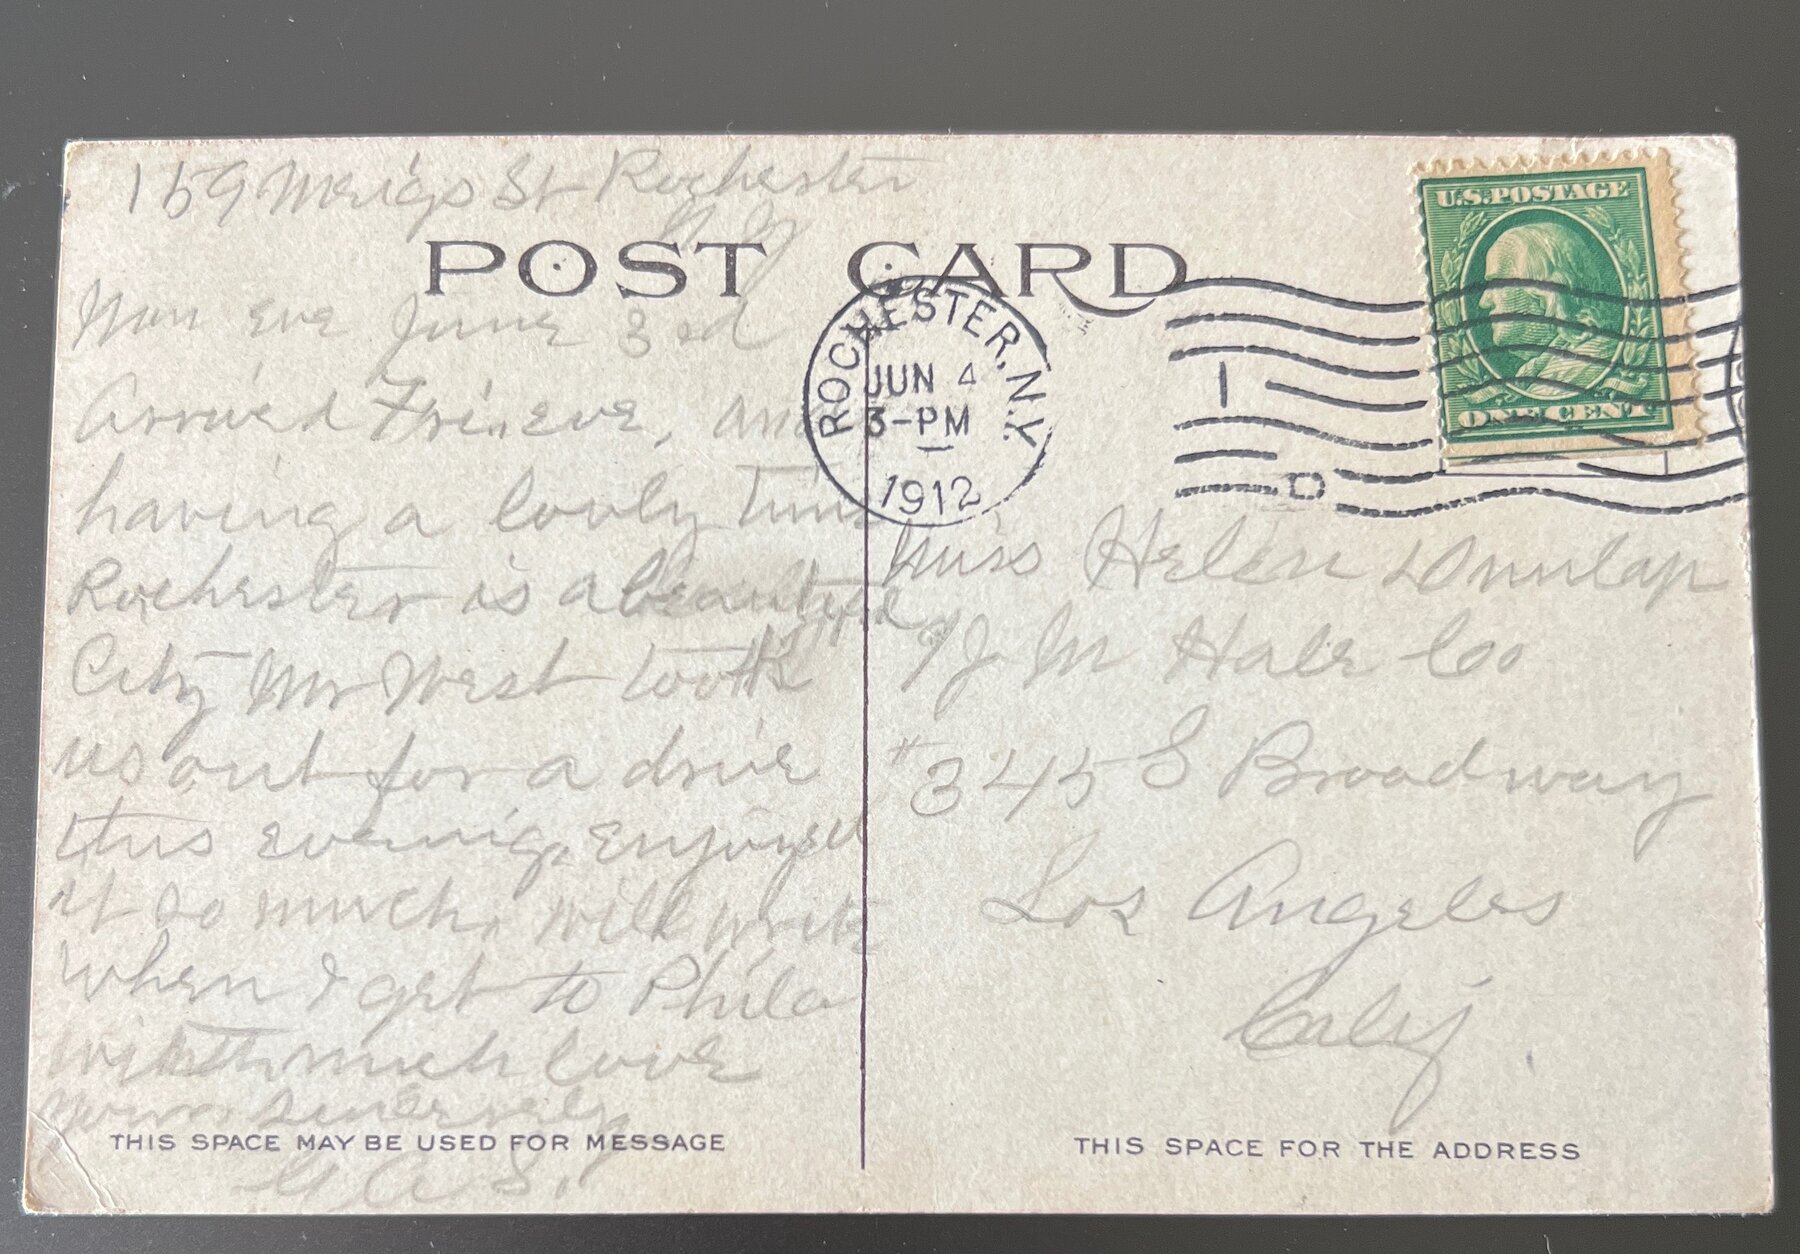 159 Meigs St Rochester
N Y
POST CARD
Mon Eve June 3rd
Arrived Fri. eve, am
having a lovly time
Rochester is a beautiful
City Mr West took
us out for a drive
this evening, enjoyed
it so much, will write
when I get to Phila
with much love
yours sincerely
A. S.
THIS SPACE MAY BE USED FOR MESSAGE
ROCHESTER, N.Y.
JUN 4
3-PM
1912
1
D
U.S. POSTAGE
ONE CENT
Miss Helen Dunlap
℅ J M Hale Co
#345 S Broadway
Los Angeles
Calif.
THIS SPACE FOR THE ADDRESS